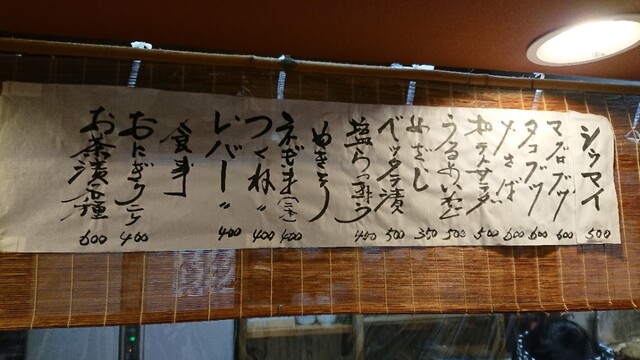 シウマイ 500
マグロブツ 600
タコブツ 600
〆さば 600
ポテトサラダ 500
うるめいわし 500
めざし 350
ベッタラ漬 500
塩らっきょう 400
やきとり
ネギま(二本) 400
つくね 〃 400
レバー 〃 400
食事
おにぎり二ケ 400
お茶漬各種 600